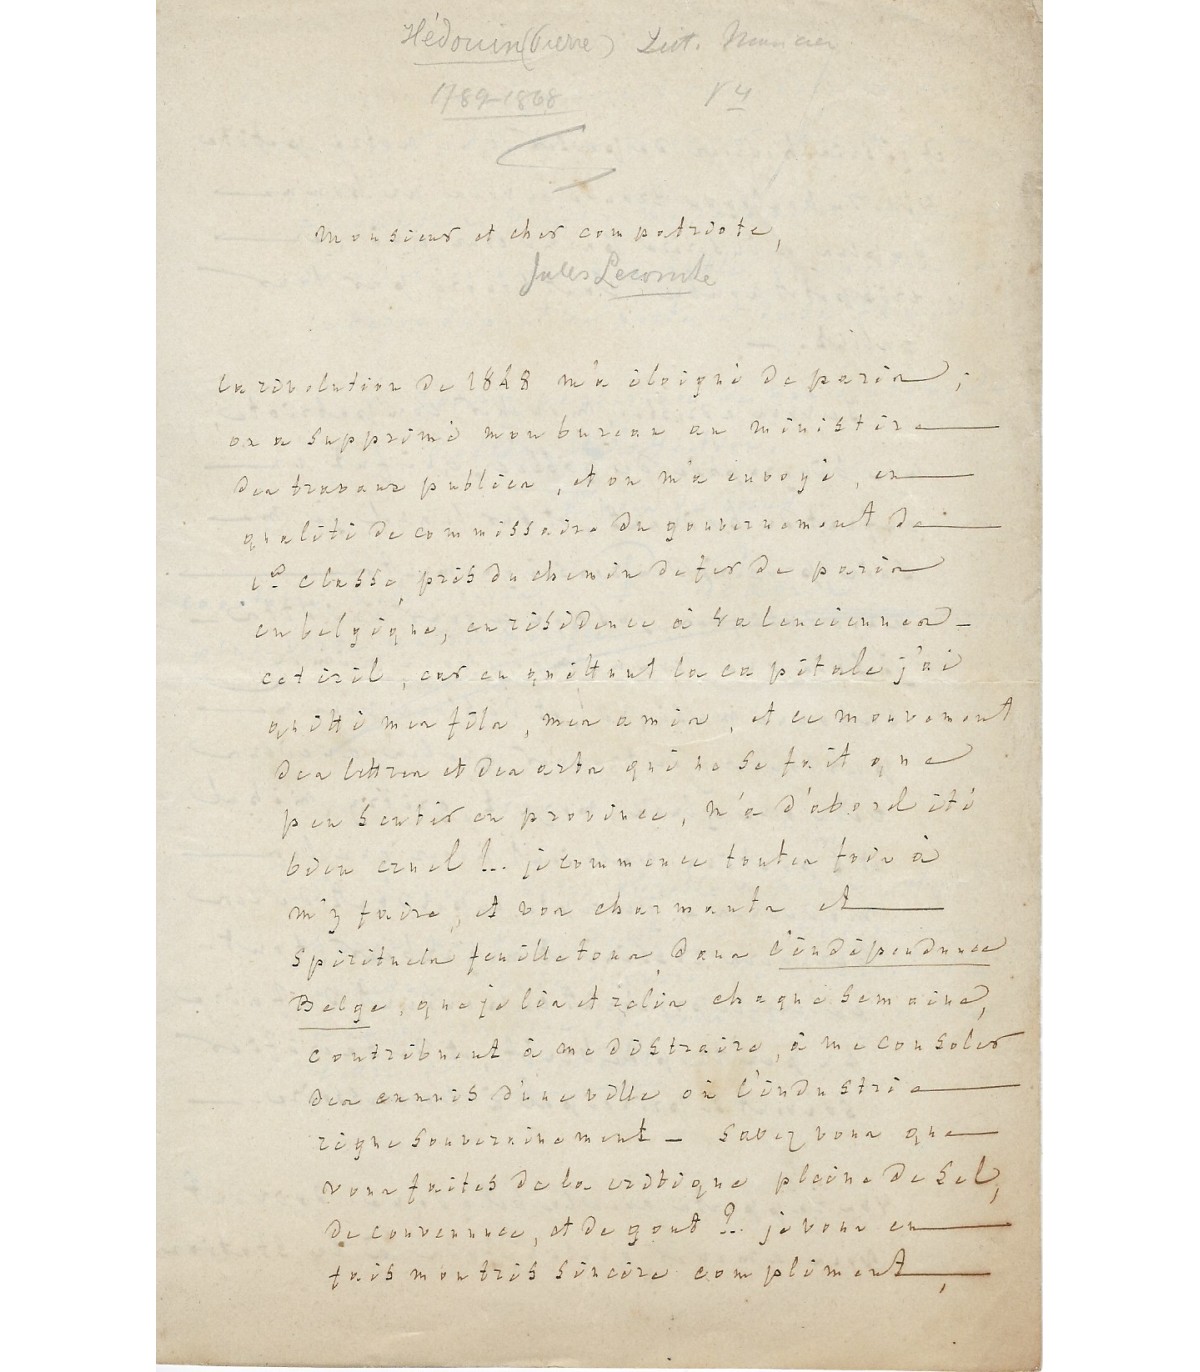 Hédouin (Pierre) Litt.
1789-1868
Monsieur et cher compatriote,
Jules Lecomte
la révolution de 1848 m'a éloigné de paris ;
on a supprimé mon bureau au ministère
des travaux publics, et on m'a envoyé, en
qualité de commissaire du gouvernement de
1e classe, près du chemin de fer de paris
en belgique, en résidence à Valenciennes –
cet exil, car en quittant la capitale j'ai
quitté mes fils, mes amis, et ce mouvement
des lettres et des arts qui ne se fait que
peu sentir en province, m'a d'abord été
bien cruel !... je commence toutes fois à
m'y faire, et vos charmants et
spirituels feuilletons, dans l'indépendance
Belge, que je lis et relis chaque semaine,
contribuent à me distraire, à me consoler
des ennuis d'une ville où l'industrie
règne souverainement – savez vous que
vous faites de la critique pleine de sel,
de convenance, et de gout ?.. je vous en
fais mon très sincère compliment,